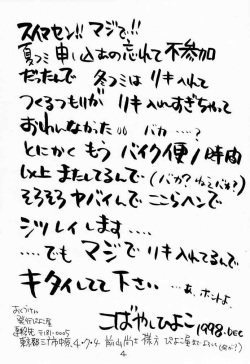 スイマセン!! マジで!!
夏コミ申し込み忘れて不参加
だったんで 冬コミは リキ入れて
つくるつもりが リキ入れすぎちゃって
おわんなかった。。 バカ ····?
とにかく もう バイク便ノ時間
以上 またしてるんで (バカ? ねえバカ?)
そろそろ ヤバイんで ここらヘンで
シツレイします ····
····でも マジで リキ入れてるんで
キタイしてて 下さい ···あ、ホントよ
こばやしひよこ 1998.DEC
発行 ぴよこ屋
連絡先 〒181-0005
東京都三鷹市中原
4